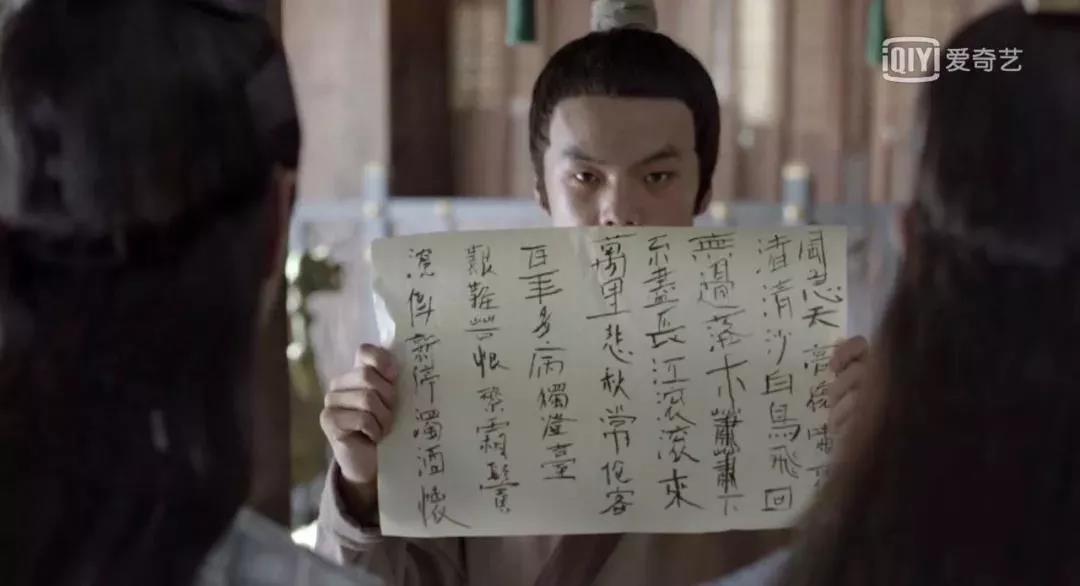 iQIYI 爱奇艺
風急天高猿嘯
渚清沙白鳥飛回
無邊落木蕭蕭下
不盡長江滾滾來
萬里悲秋常作客
百年多病獨登臺
艱難苦恨繁霜鬢
潦倒新停濁酒